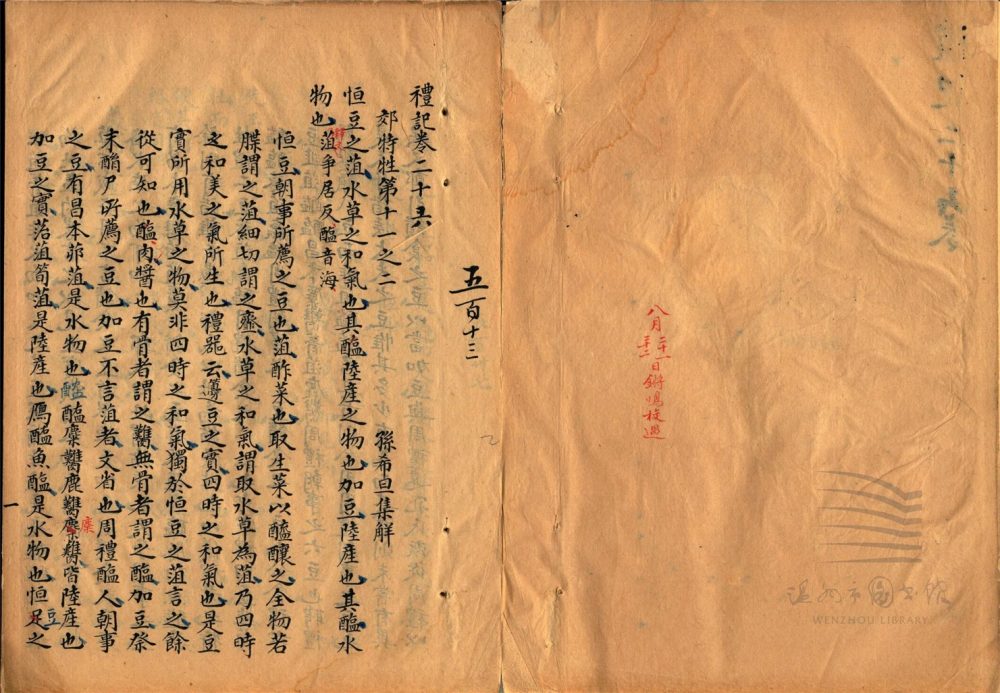 八月二十一日鏘鳴校過
温州市图书馆
WENZHOU LIBRARY
五百十三
禮記卷二十六
郊特牲第十一之二 孫希旦集解
恒豆之菹水草之和氣也其醢陸產之物也加豆陸產也其醢水
物也菹爭居反醢音海
恒豆朝事所薦之豆也菹酢菜也取生菜以醯釀之全物若
牒謂之菹細切謂之齏水草之和氣謂取水草為菹乃四時
之和美之氣所生也禮器云籩豆之實四時之和氣也是豆
實所用水草之物莫非四時之和氣獨於恒豆之菹言之餘
從可知也醢肉醬也有骨者謂之臡無骨者謂之醢加豆祭
末酳尸所薦之豆也加豆不言菹者文省也周禮醢人朝事
之豆有昌本茆菹是水物也醓醢麋臡鹿臡麇臡皆陸產也
加豆之實菭菹筍菹是陸產也鴈醢魚醢是水物也恒豆之
一